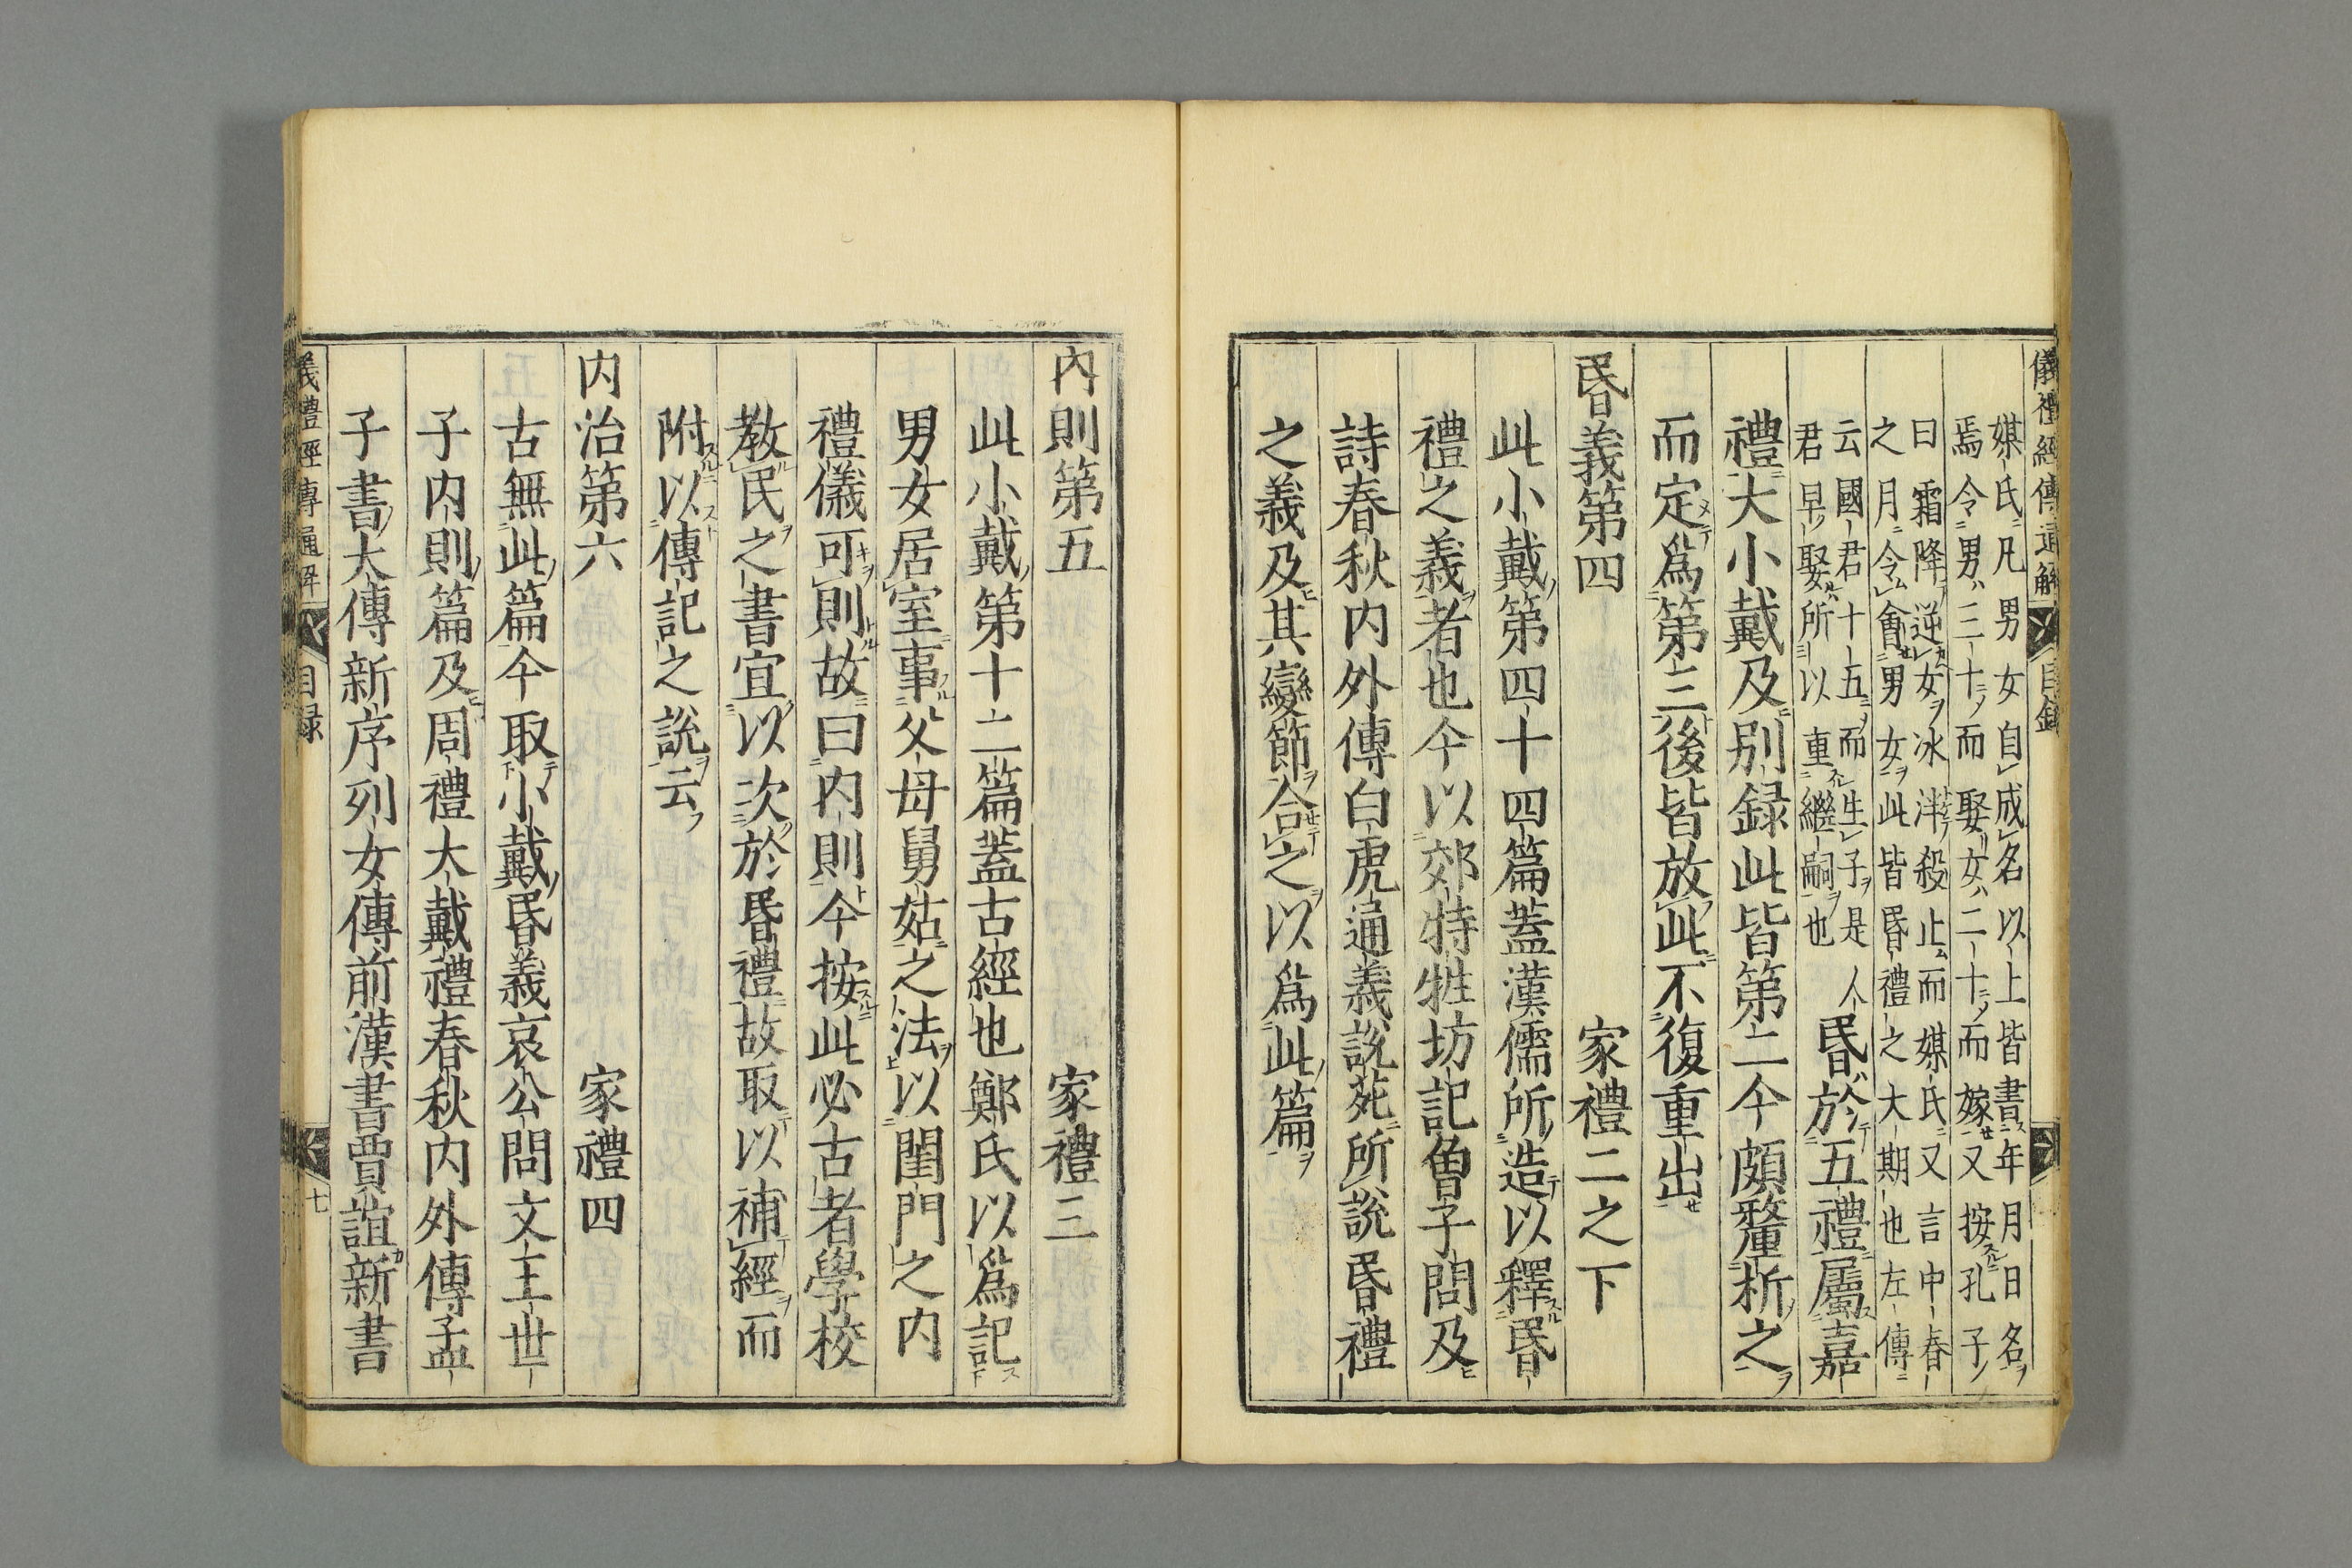 儀禮經傳通解 目録
媒氏凡男女自成名以上皆書年月日名
焉令男三十而娶女二十而嫁又按孔子
曰霜降逆女冰泮殺止而媒氏又言中春
之月令會男女此皆昏禮之大期也左傳
云國君十五而生子是
君早娶所以重繼嗣也
人昏於五禮屬嘉
禮大小戴及别録此皆第二今頗釐析之
而定爲第三後皆放此不復重出
昏義第四 家禮二之下
此小戴第四十四篇蓋漢儒所造以釋昏
禮之義者也今以郊特牲坊記曾子問及
詩春秋内外傳白虎通義說苑所說昏禮
之義及其變節合之以爲此篇
內則第五 家禮三
此小戴第十二篇蓋古經也鄭氏以爲記
男女居室事父母舅姑之法以閨門之内
禮儀可則故曰内則今按此必古者學校
教民之書宜以次於昏禮故取以補經而
附以傳記之說云
内治第六 家禮四
古無此篇今取小戴昏義哀公問文王世
子内則篇及周禮大戴禮春秋内外傳孟
子書大傳新序列女傳前漢書賈誼新書
儀禮經傳通解 目録 七